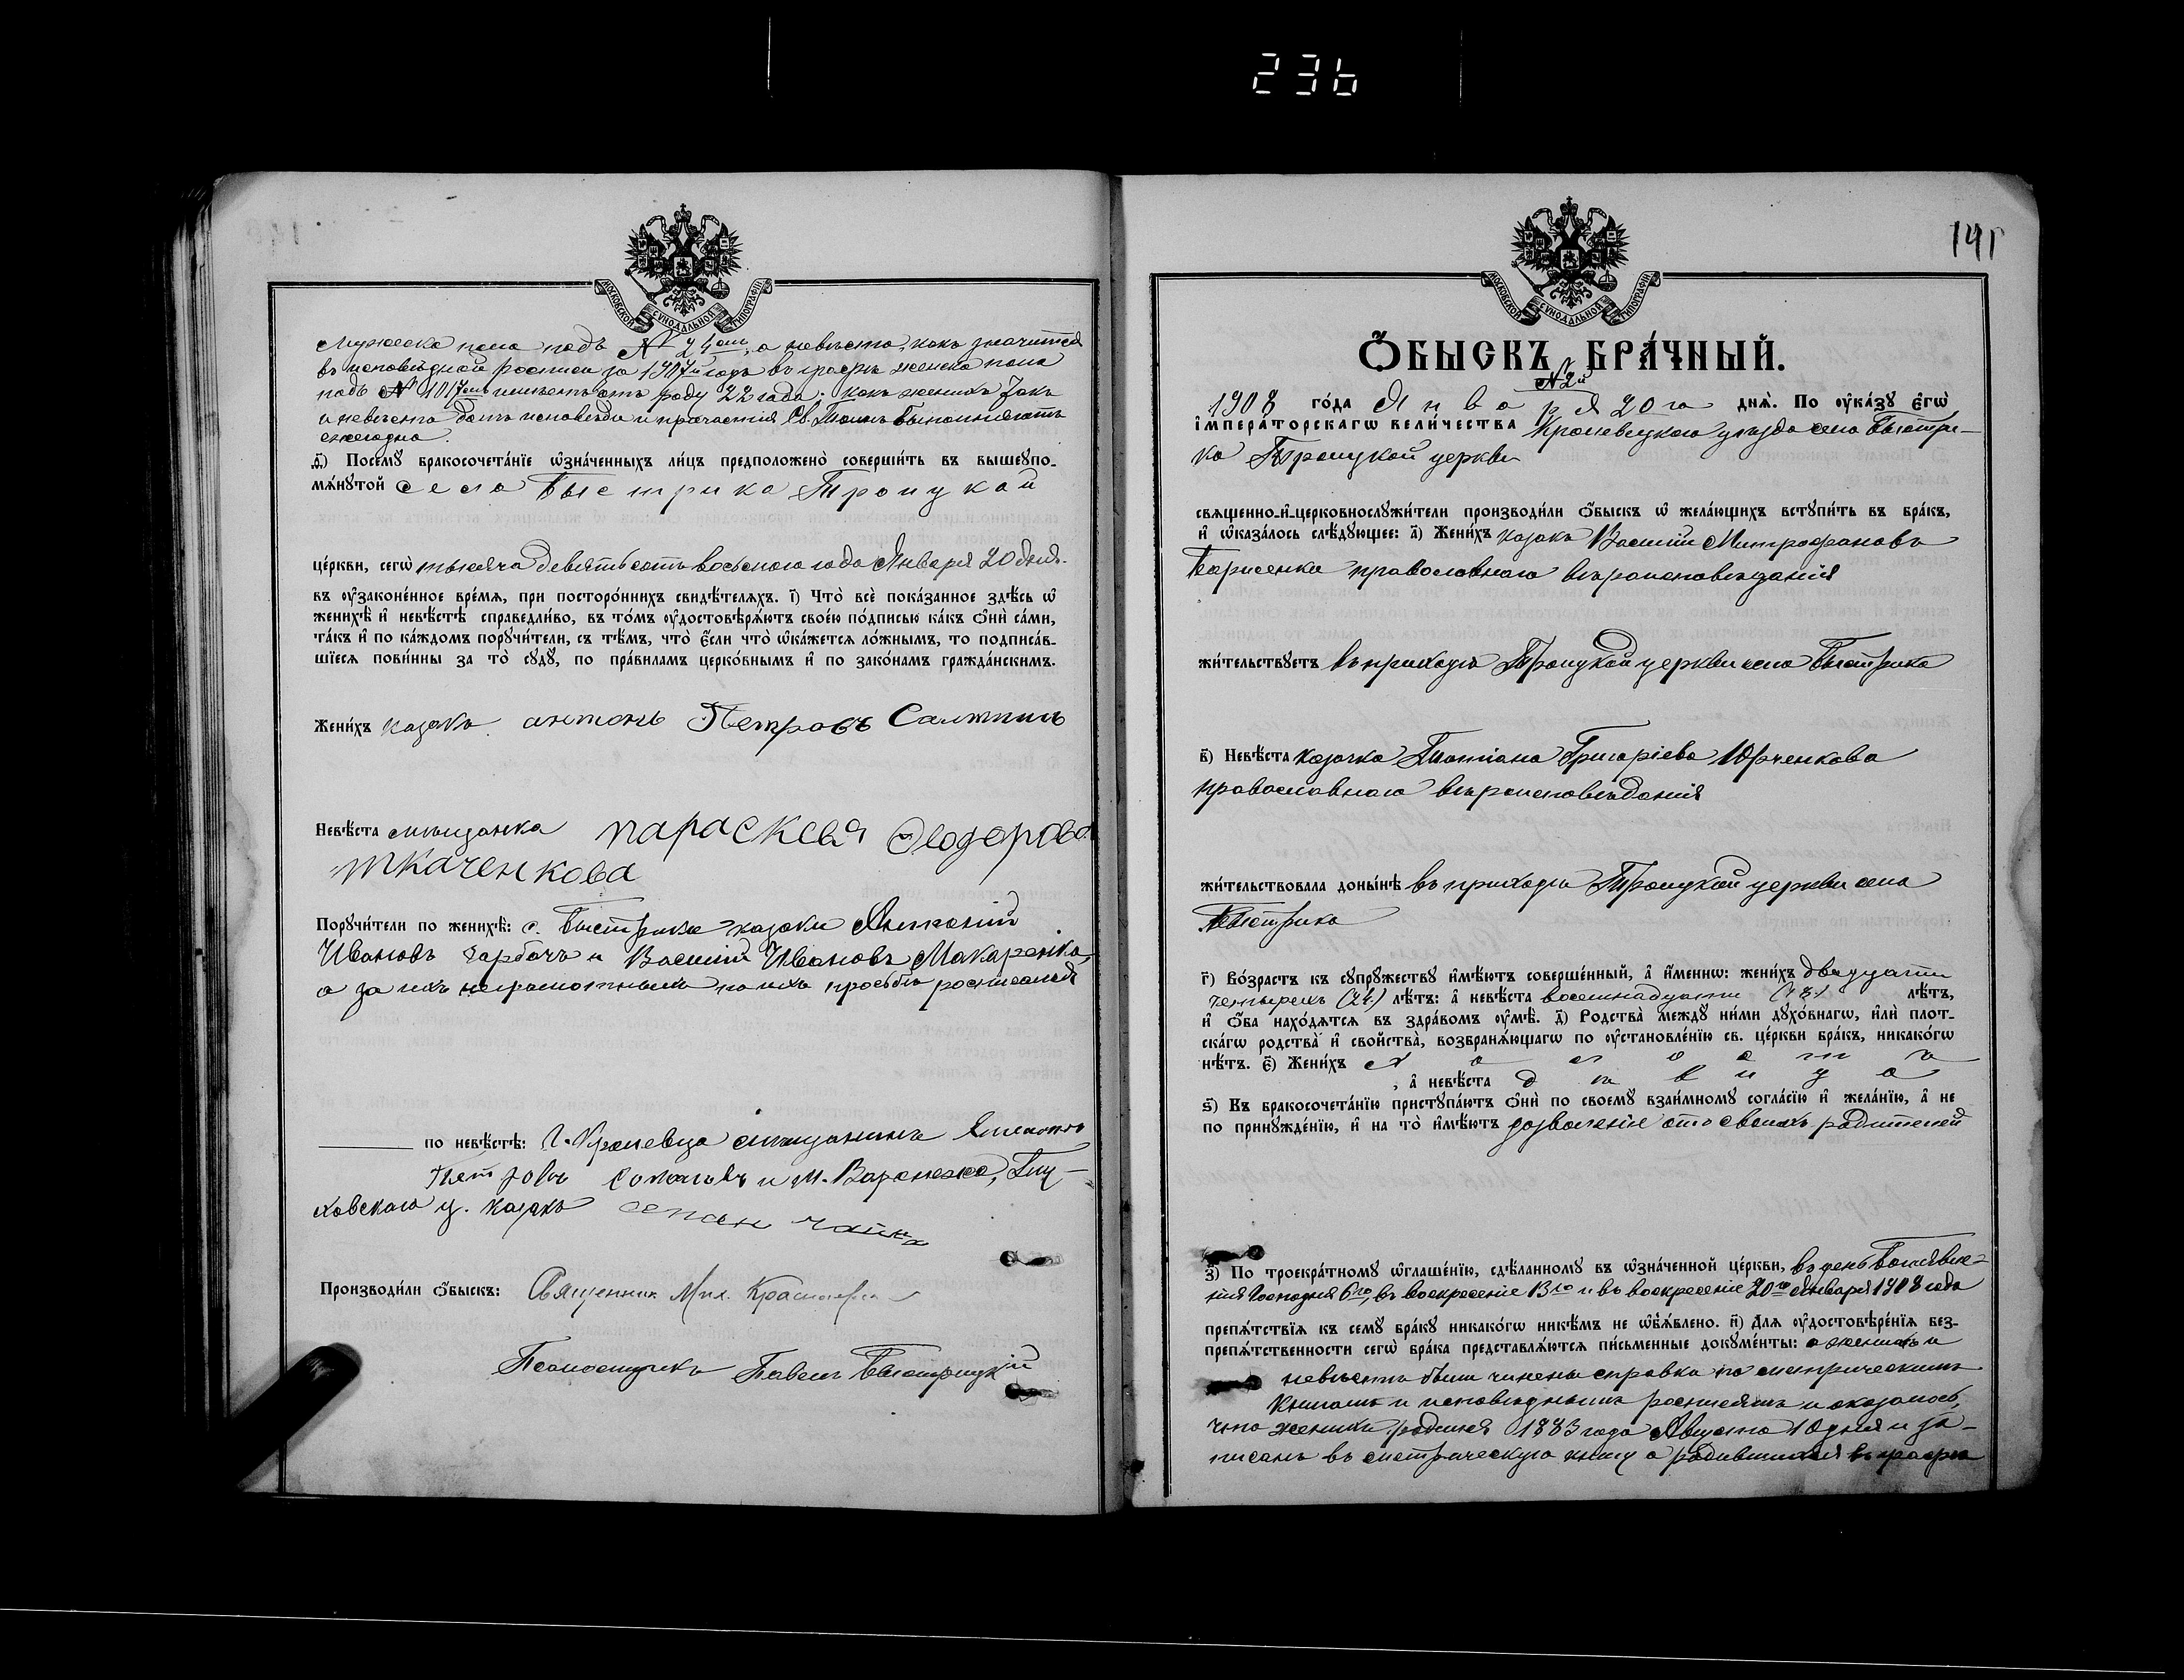 236
МОСКОВСКОЙ СѴНОДАЛЬНОЙ ТИПОГРАФІИ
мужеска пола подъ № 24омъ, а невѣста, какъ значится
въ исповѣдной росписи за 1907й годъ въ графѣ женска пола
подъ № 1017омъ имѣетъ отъ роду 22 года. какъ женихъ такъ
и невѣста долгъ исповѣди и причастія Св. Таинъ выполняютъ
ежегодно.
ѳ҃) Посемꙋ бракосочета́нїе ѡзна́ченныхъ ли́цъ предположено̀ соверши́ть въ вышеꙋпо-
мѧ́нꙋтой села Быстрика Троицкой
це́ркви, сегѡ̀ тысяча девятьсотъ восьмого года Января 20 дня.
въ ᲂу҆зако́ненное вре́мѧ, при посторо́ннихъ свидѣ́телѧхъ. і҃) Что̀ всѐ пока́занное здѣ́сь ѡ҆
женихѣ̀ и҆ невѣ́стѣ справедли́во, въ то́мъ ᲂу҆достовѣрѧ́ютъ свое́ю по́дписью ка́къ ѻ҆нѝ са́ми,
та́къ и҆ по ка́ждомъ порꙋчи́тели, съ тѣ́мъ, что̀ є҆́сли что̀ ѡ҆ка́жетсѧ ло́жнымъ, то подписа́в-
шїесѧ пови́нны за то̀ сꙋдꙋ̀, по пра́виламъ церко́внымъ и҆ по зако́намъ гражда́нскимъ.
Жени́хъ казакъ антонъ Петровъ Салтинъ
Невѣ́ста мѣщанка параскева Феодорова
ткаченкова
Порꙋчи́тели по женихѣ̀: с. Быстрика казаки Антоній
Ивановъ Гарбачъ и Василій Ивановъ Макаренко,
а за ихъ неграмотныхъ по ихъ просьбѣ росписался
по невѣ́стѣ: г. Кролевца мѣщанинъ
Петровъ и м. Воронежа, Глу-
ховскаго у. казакъ
Производи́ли ѻ҆́быскъ: Священник Мих.
Псаломщикъ Павелъ Быстрицкій
141
МОСКОВСКОЙ СѴНОДАЛЬНОЙ ТИПОГРАФІИ
Ѻ҆́БЫСКЪ БРА́ЧНЫЙ.
№ 2й
1908 го́да Января 20го днѧ̀. По ᲂу҆ка́зꙋ є҆гѡ̀
і҆мпера́торскагѡ вели́чества Кролевецкаго уѣзда села Быстри-
ка Троицкой церкви
свѧщенно-и҆-церковнослꙋжи́тели производи́ли ѻ҆́быскъ ѡ҆ жела́ющихъ встꙋпи́ть въ бра́къ,
и҆ ѡ҆каза́лось слѣ́дꙋющее: а҃) Жени́хъ казакъ Василій Митрофановъ
Борисенко православнаго вѣроисповѣданія
жи́тельствꙋетъ въ приходѣ Троицкой церкви села Быстрика
в҃) Невѣ́ста казачка Татіана Григоріева Юрченкова
православнаго вѣроисповѣданія
жи́тельствовала доны́нѣ въ приходѣ Троицкой церкви села
Быстрика
г҃) Во́зрастъ къ сꙋпрꙋ́жествꙋ и҆мѣ́ютъ соверше́нный, а҆ и҆́меннѡ: жени́хъ двадцати
четырехъ (24) лѣ́тъ: а҆ невѣ́ста восемнадцати (18) лѣ́тъ,
и҆ ѻ҆́ба нахо́дѧтсѧ въ здра́вомъ ᲂу҆мѣ̀. д҃) Родства̀ междꙋ ни́ми дꙋхо́внагѡ, и҆лѝ плот-
ска́гѡ родства̀ и҆ свойства̀, возбранѧ́ющагѡ по ᲂу҆становле́нїю св. це́ркви бра́къ, никако́гѡ
нѣ́тъ. є҃) Жени́хъ холостъ
, а҆ невѣ́ста дѣвица
ѕ҃) Въ бракосочета́нїю пристꙋпа́ютъ ѻ҆нѝ по своемꙋ̀ взаи́мномꙋ согла́сїю и҆ жела́нїю, а҆ не
по принꙋжде́нїю, и҆ на то̀ и҆мѣ́ютъ дозволеніе отъ своихъ родителей
з҃) По троекра́тномꙋ ѡ҆глаше́нїю, сдѣ́ланномꙋ въ ѡ҆зна́ченной це́ркви, въ день Богоявле-
нія Господня 6го, въ воскресеніе 13го и въ воскресеніе 20го января 1908 года
препѧ́тствїѧ къ семꙋ̀ бра́кꙋ никако́гѡ никѣ́мъ не ѡ҆б̾ѧ́влено. и҃) Для ᲂу҆достовѣре́нїѧ без-
препѧ́тственности сегѡ̀ бра́ка представлѧ́ютсѧ пи́сьменные докꙋме́нты: о женихѣ и
невѣстѣ были чинены справки по метрическимъ
книгамъ и исповѣднымъ росписямъ и оказалось,
что женихъ родился 1883 года Августа 10 дня и за-
писанъ въ метрическую книгу о родившихся въ графѣ